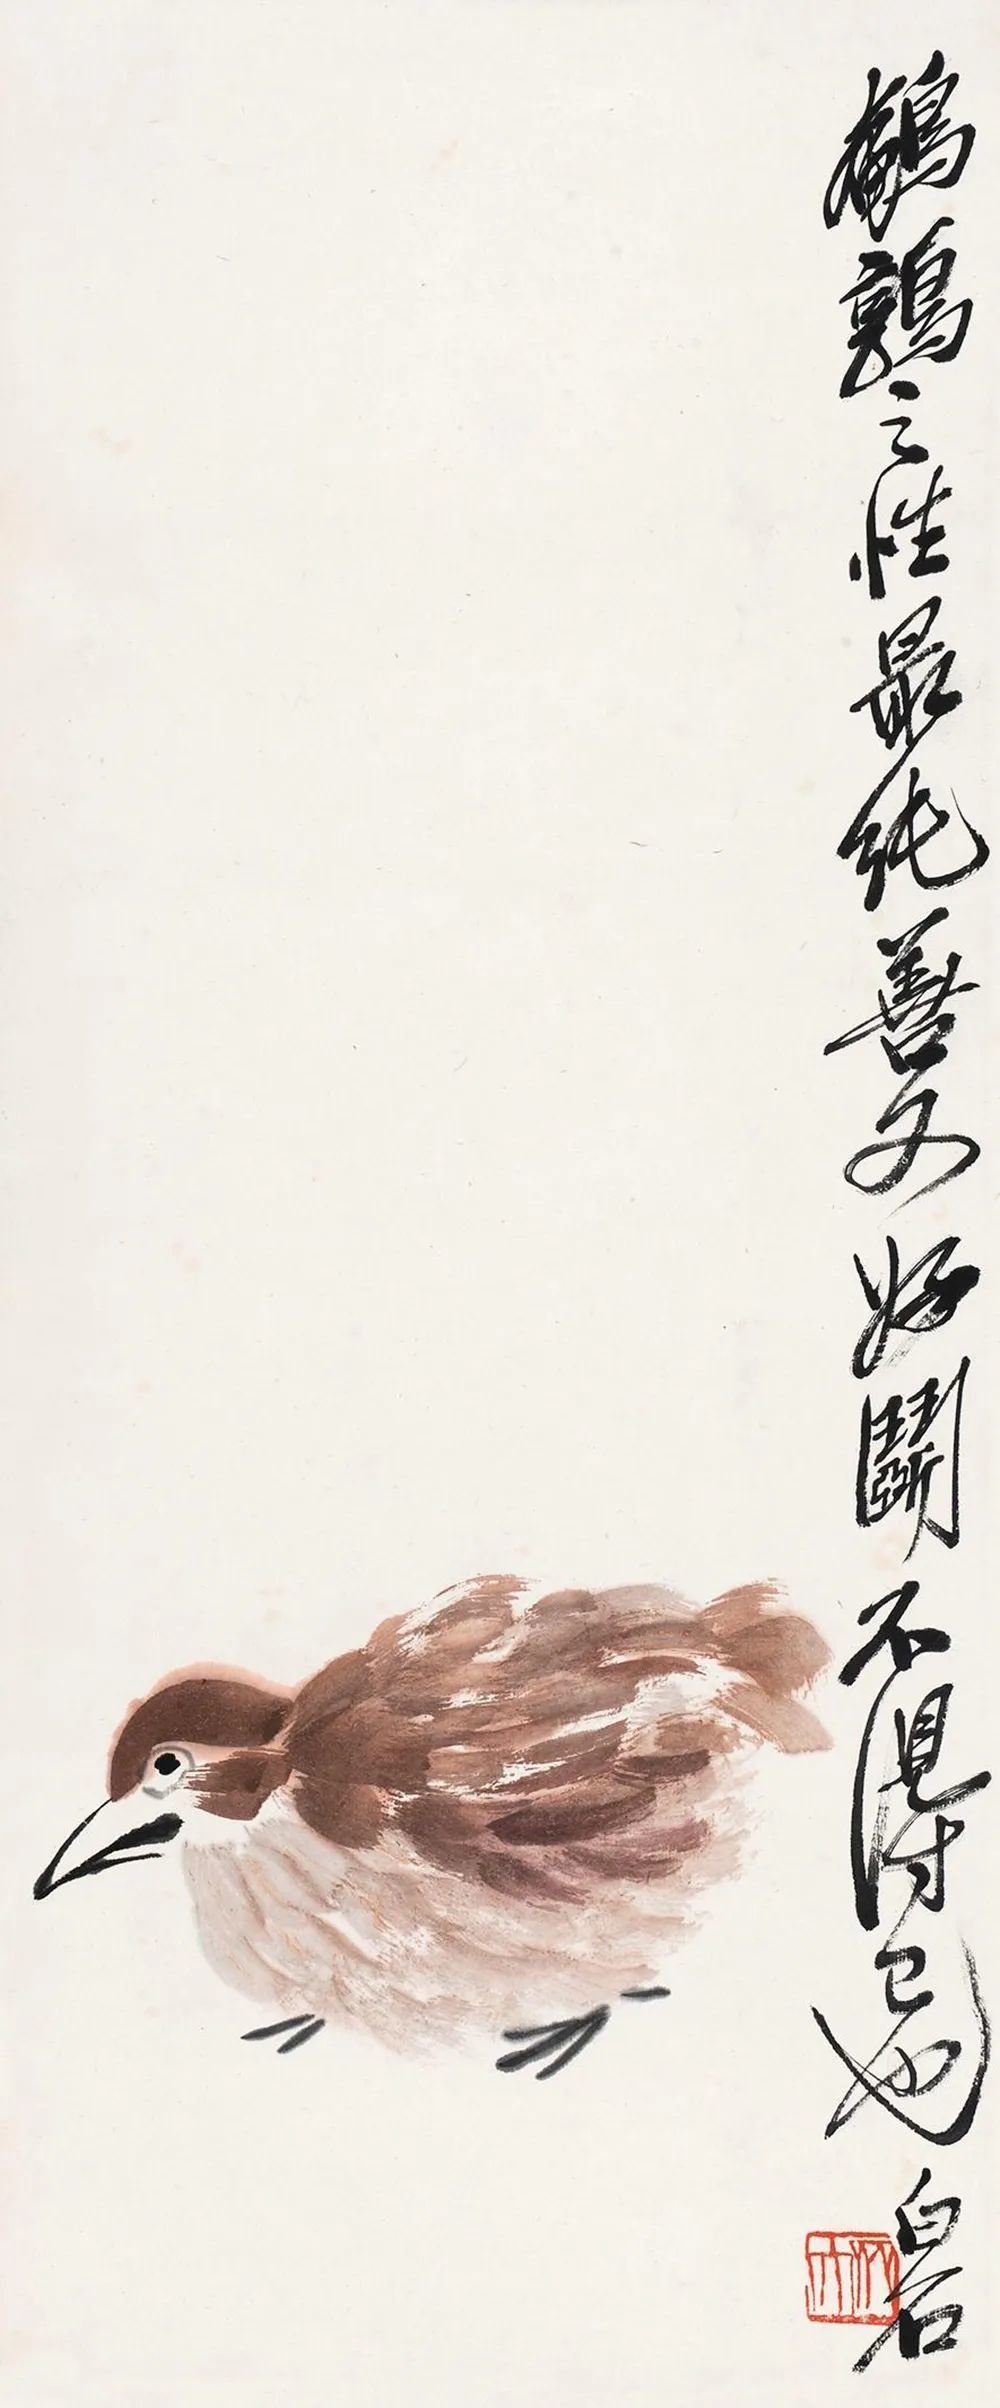 鵪鶉之性最純善又好鬭不得已也白石
木人